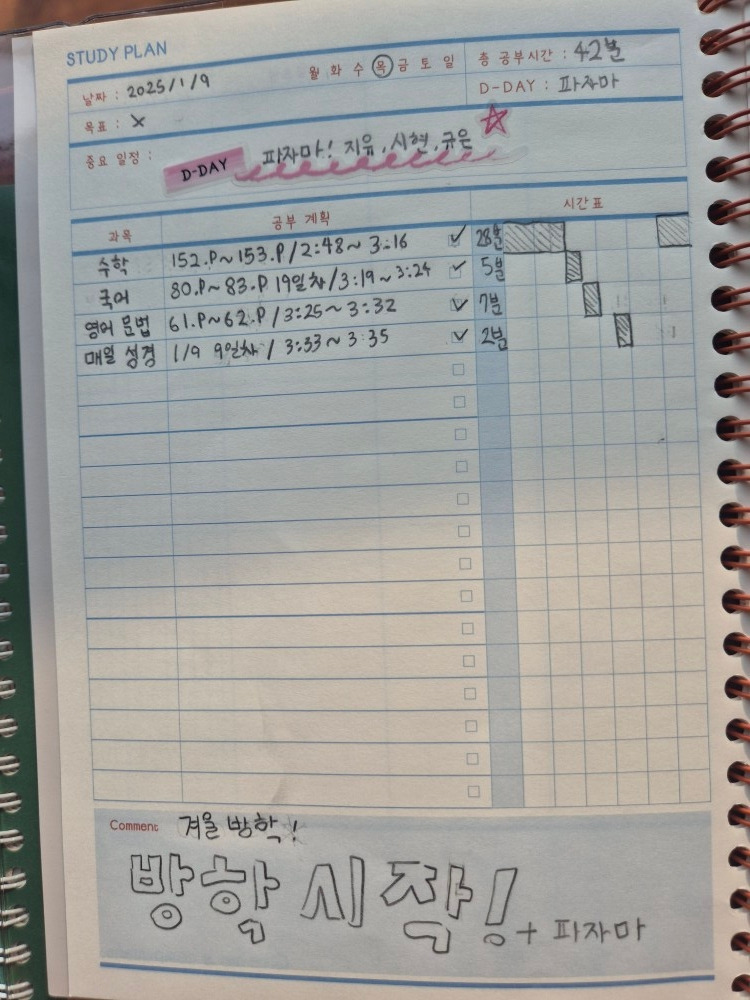 STUDY PLAN
날짜 : 2025/1/9 월 화 수 목 금 토 일 총 공부시간 : 42분
목표 : X D-DAY : 파자마
중요 일정 : D-DAY 파자마! 지유, 시현, 규은
과목 공부 계획 시간표
수학 152.P~153.P/2:48~3:16 28분
국어 80.P~83.P 19일차/3:19~3:24 5분
영어 문법 61.P~62.P/3:25~3:32 7분
매일 성경 1/9 9일차/3:33~3:35 2분
Comment 겨울 방학!
방학 시작! + 파자마